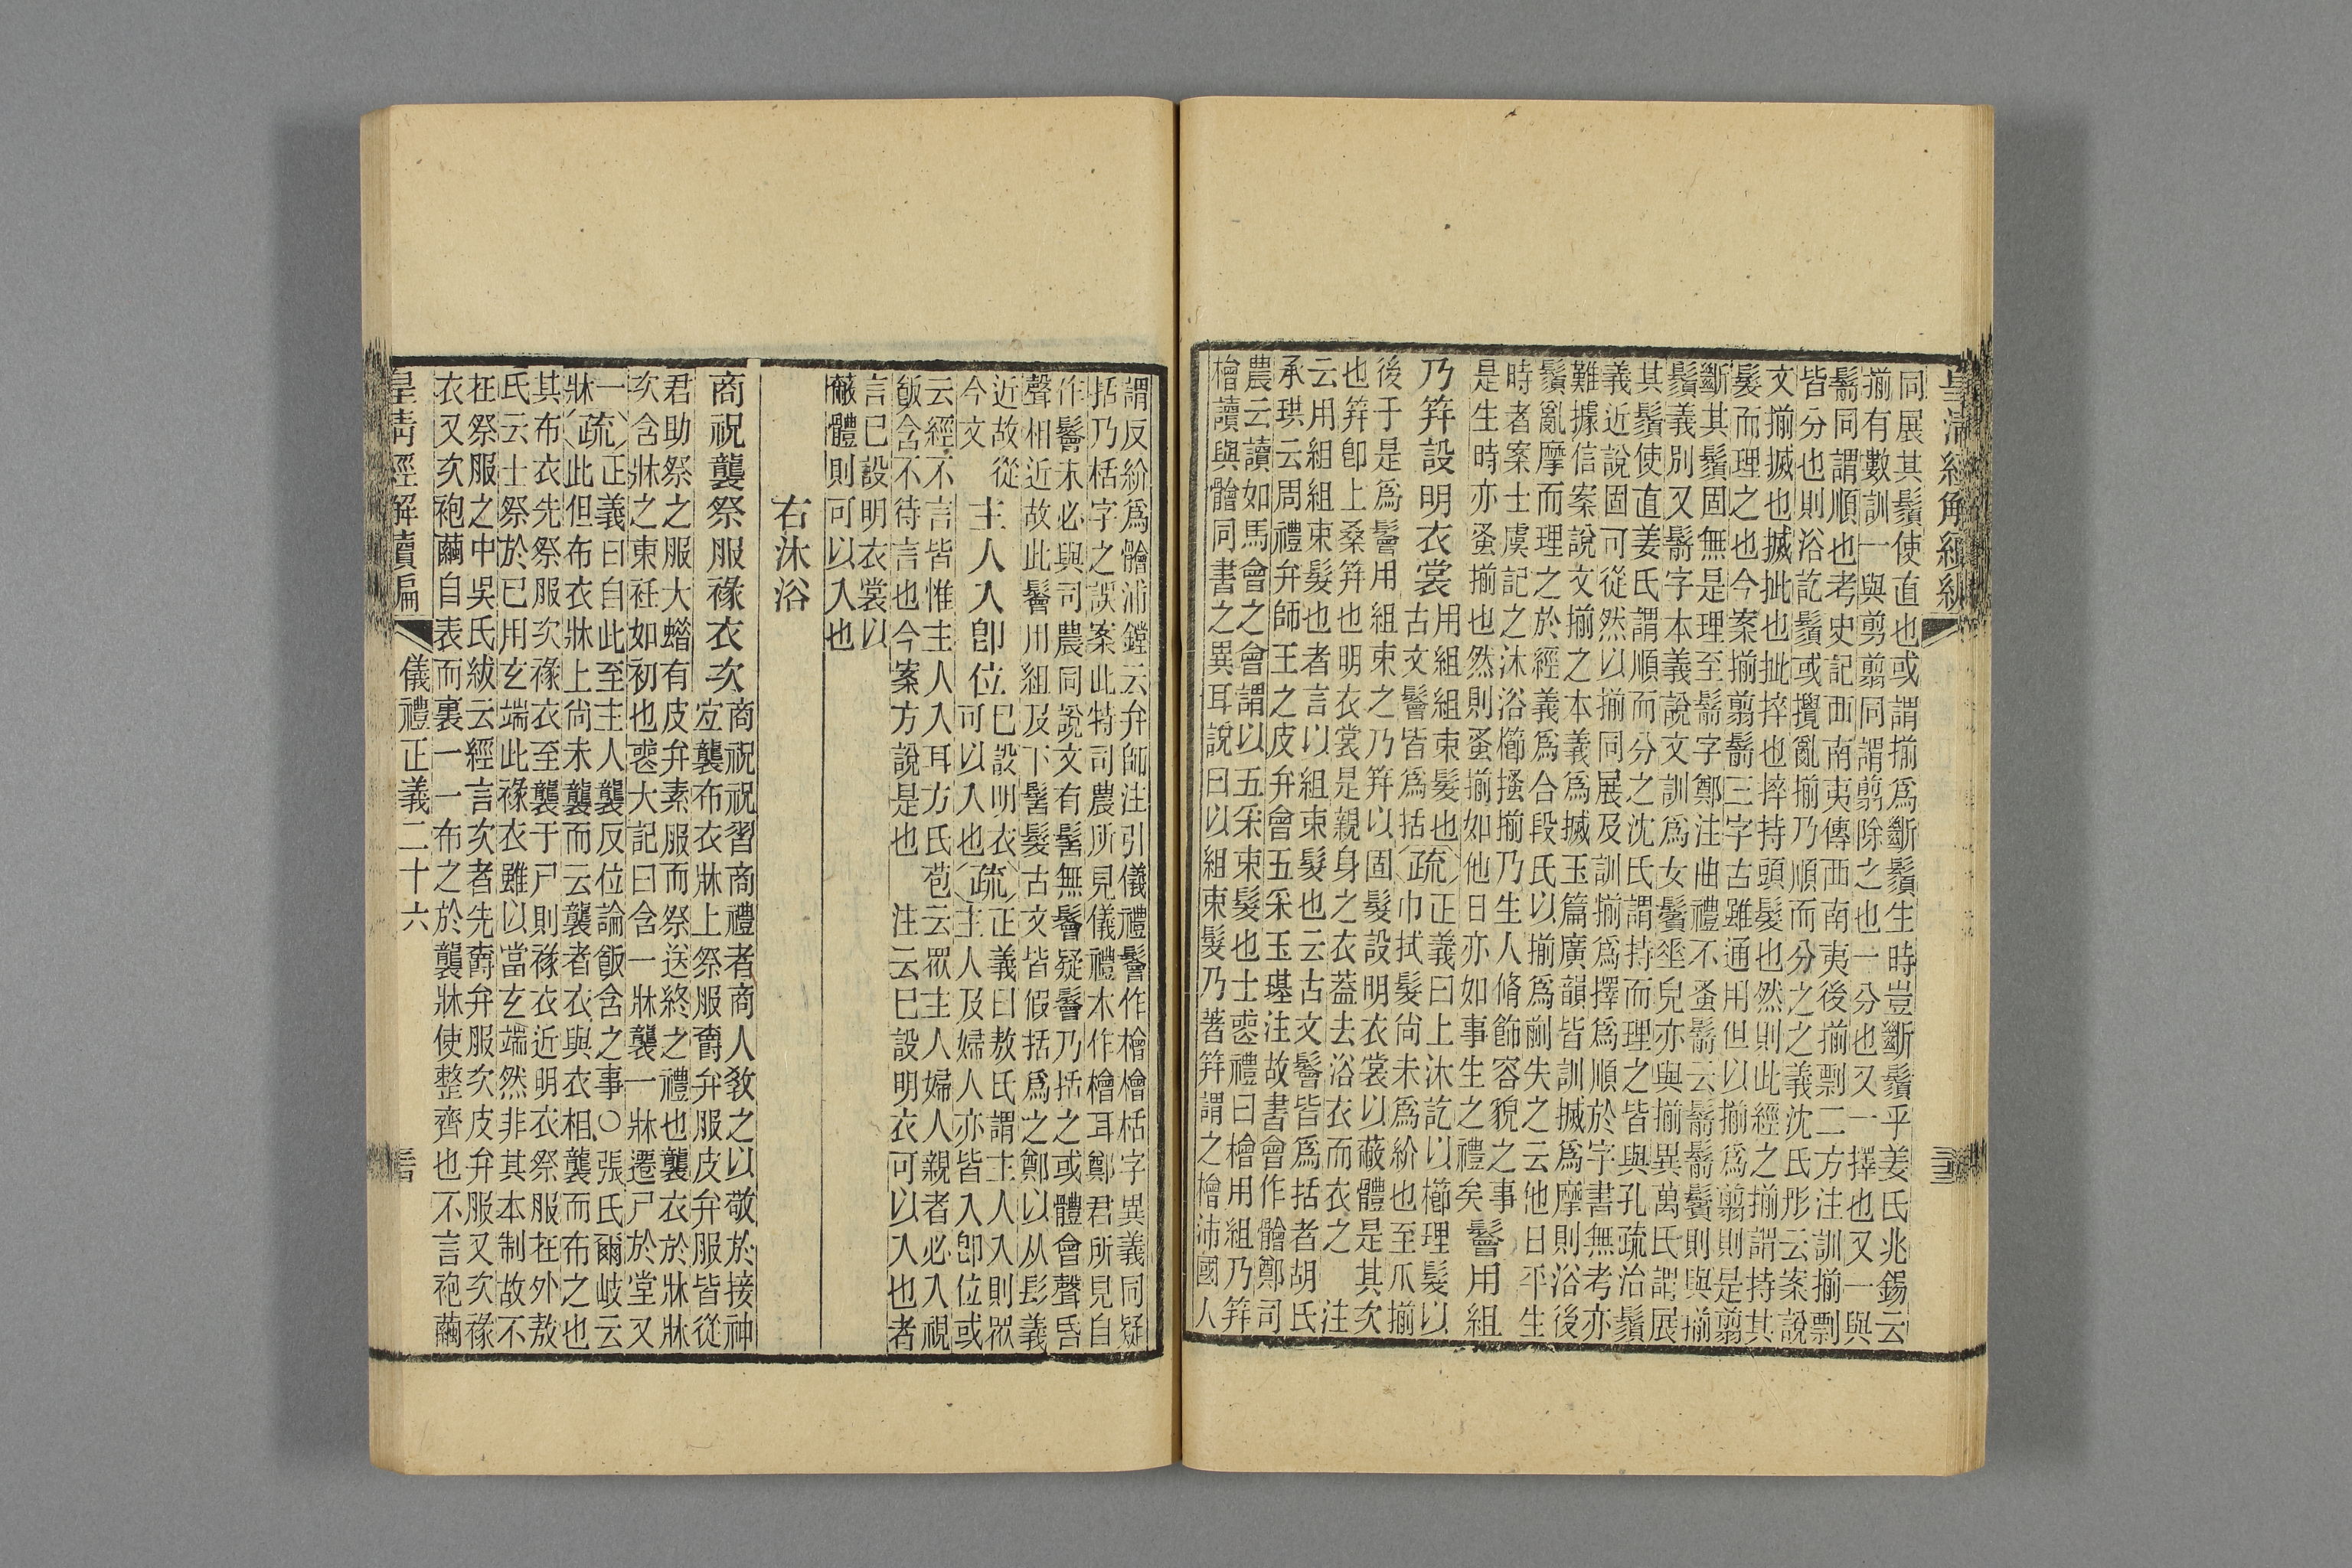 皇清經解續編
同展其鬚使直也或謂揃爲斷鬚生時豈斷鬚乎姜氏兆錫云
揃有數訓一與剪翦同謂翦除之也一分也又一擇也又一與
鬋同謂順也考史記西南夷傳西南夷後揃剽二方注訓揃剽
皆分也則浴訖鬚或攪亂揃乃順而分之之義沈氏彤云案說
文揃搣也搣批也批捽也捽持頭髮也然則此經之揃謂持其
髮而理之也今案揃翦鬋三字古雖通用但以揃爲翦則是翦
斷其鬚固無是理至鬋字鄭注曲禮不蚤鬋云鬋鬢則與揃
鬚義別又鬋字本義說文訓爲女鬢垂皃亦與揃異萬氏謂展
其鬚使直姜氏謂順而分之沈氏謂持而理之皆與孔疏治鬚
義近說固可從然以揃同展及訓揃爲擇爲順於字書無考亦
難據信案說文揃之本義爲搣玉篇廣韻皆訓搣爲摩則浴後
鬚亂摩而理之於經義爲合段氏以揃爲翦失之云他日平生
時者案士虞記之沐浴櫛搔揃乃生人脩飾容貌之事
是生時亦蚤揃也然則蚤揃如他日亦如事生之禮矣 鬠用組
乃笄設明衣裳
用組組束髮也疏正義曰上沐訖以櫛理髮以
古文鬠皆爲括巾拭髮尚未爲紒也至爪揃
後于是爲鬠用組束之乃笄以固髮設明衣裳以蔽體是其次
也笄卽上桑笄也明衣裳是親身之衣蓋去浴衣而衣之 注
云用組組束髮也者言以組束髮也云古文鬠皆爲括者胡氏
承珙云周禮弁師王之皮弁會五采玉璂注故書會作䯤鄭司
農云讀如馬會之會謂以五采束髮也士喪禮曰檜用組乃笄
檜讀與䯤同書之異耳說曰以組束髮乃著笄謂之檜沛國人
謂反紒爲䯤浦鏜云弁師注引儀禮鬠作檜檜栝字異義同疑
括乃栝字之誤案此特司農所見儀禮本作檜耳鄭君所見自
作鬠未必與司農同說文有髻無鬠疑鬠乃括之或體會聲昏
聲相近故此鬠用組及下髻髮古文皆假括爲之鄭以从髟義
近故從
今文
主人入卽位
已設明衣疏正義曰敖氏謂主人入則眾
可以入也 主人及婦人亦皆入卽位或
云經不言皆惟主人入耳方氏苞云眾主人婦人親者必入視
飯含不待言也今案方說是也 注云已設明衣可以入也者
言已設明衣裳以
蔽體則可以入也
右沐浴
商祝襲祭服褖衣次
商祝祝習商禮者商人敎之以敬於接神
宜襲布衣牀上祭服爵弁服皮弁服皆從
君助祭之服大蜡有皮弁素服而祭送終之禮也襲衣於牀牀
次含牀之東衽如初也喪大記曰含一牀襲一牀遷尸於堂又
一
牀疏正義曰自此至主人襲反位論飯含之事○張氏爾岐云
此但布衣牀上尚未襲而云襲者衣與衣相襲而布之也
其布衣先祭服次褖衣至襲于尸則褖衣近明衣祭服在外敖
氏云士祭於已用玄端此褖衣雖以當玄端然非其本制故不
在祭服之中吳氏紱云經言次者先爵弁服次皮弁服又次褖
衣又次袍繭自表而裏一一布之於襲牀使整齊也不言袍繭
皇清經解續編 儀禮正義二十六